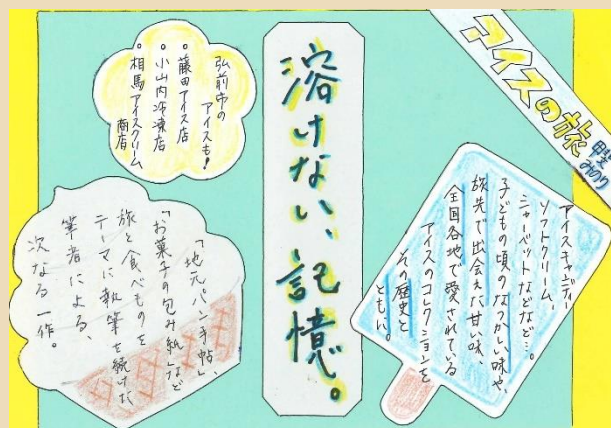 アイスの旅
甲斐みのり
アイスキャンディー、
ソフトクリーム、
シャーベットなどなど…。
子どもの頃のなつかしい味や、
旅先で出会えた甘い味、
全国各地で愛されている
アイスのコレクションを
その歴史と
ともに。
溶けない、記憶。
弘前市の
アイスも!
・藤田アイス店
・小山内冷凍店
・相馬アイスクリーム
商店
「地元パン手帖」、
「お菓子の包み紙」など
旅と食べものを
テーマに執筆を続けた
筆者による、
次なる一作。